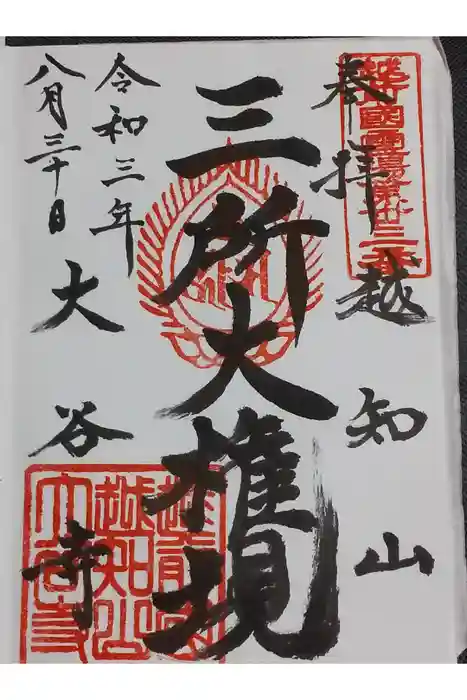 奉拝 越知山
三所大権現
令和三年
八月三十日
大谷寺
越前國
越知山
大谷寺